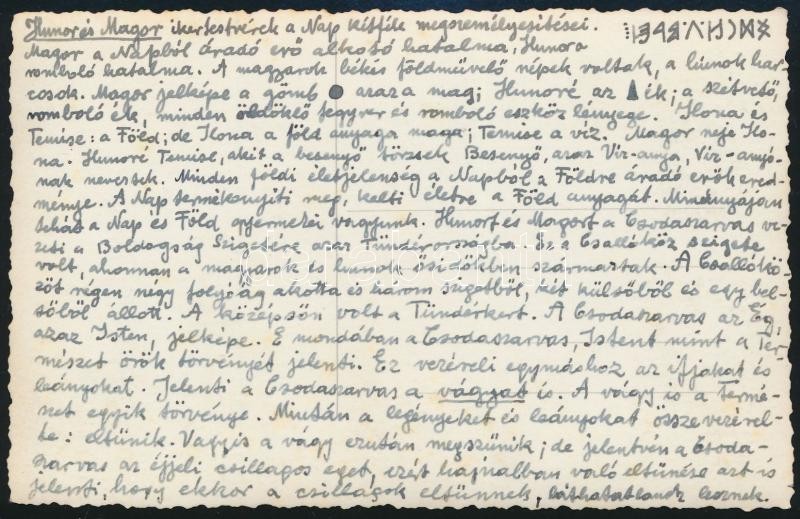 Hunor és Magor ikertestvérek a Nap kétféle megszemélyesitései.
Magor a Napból áradó erő alkotó hatalma, Hunor a
romboló hatalma. A magyarok békés földművelő népek voltak, a húnok har-
cosok. Magor jelképe a gömb ● azaz a mag; Hunoré az ▲ ék; a szétvető,
romboló ék, minden öldöklő fegyver és romboló eszköz lényege. Ilona és
Temise: a Föld; de Ilona a föld anyaga maga; Temise a víz. Magor neje Ilo-
na. Hunoré Temise, akit a besenyő törzsek Besenyő, azaz Víz-anya, Víz-anyó-
nak neveztek. Minden földi életjelenség a Napból a Földre áradó erők ered-
ménye. A Nap termékenyíti meg, kelti életre a Föld anyagát. Mindnyájan
tehát a Nap és Föld gyermekei vagyunk. Hunort és Magort a Csodaszarvas ve-
zeti a Boldogság Szigetére azaz Tündérországba. Ez a Csallóköz szigete
volt, ahonnan a magyarok és hunok ősidőkben származtak. A Csallókö-
zöt régen négy folyóág alkotta és három szigetből, két külsőből és egy bel-
sőből állott. A középsőn volt a Tündérkert. A Csodaszarvas az Ég,
azaz Isten, jelképe. E mondában a Csodaszarvas, Istent mint a Ter-
mészet örök törvényét jelenti. Ez vezéreli egymáshoz az ifjakat és
leányokat. Jelenti a Csodaszarvas a vágyat is. A vágy is a Termé-
szet egyik törvénye. Miután a legényeket és leányokat összevezérel-
te: eltünik. Vagyis a vágy ezután megszünik; de jelentvén a Csoda-
szarvas az éjjeli csillagos eget, ezért hajnalban való eltünése azt is
jelenti, hogy ekkor a csillagok eltünnek, láthatatlanok lesznek.